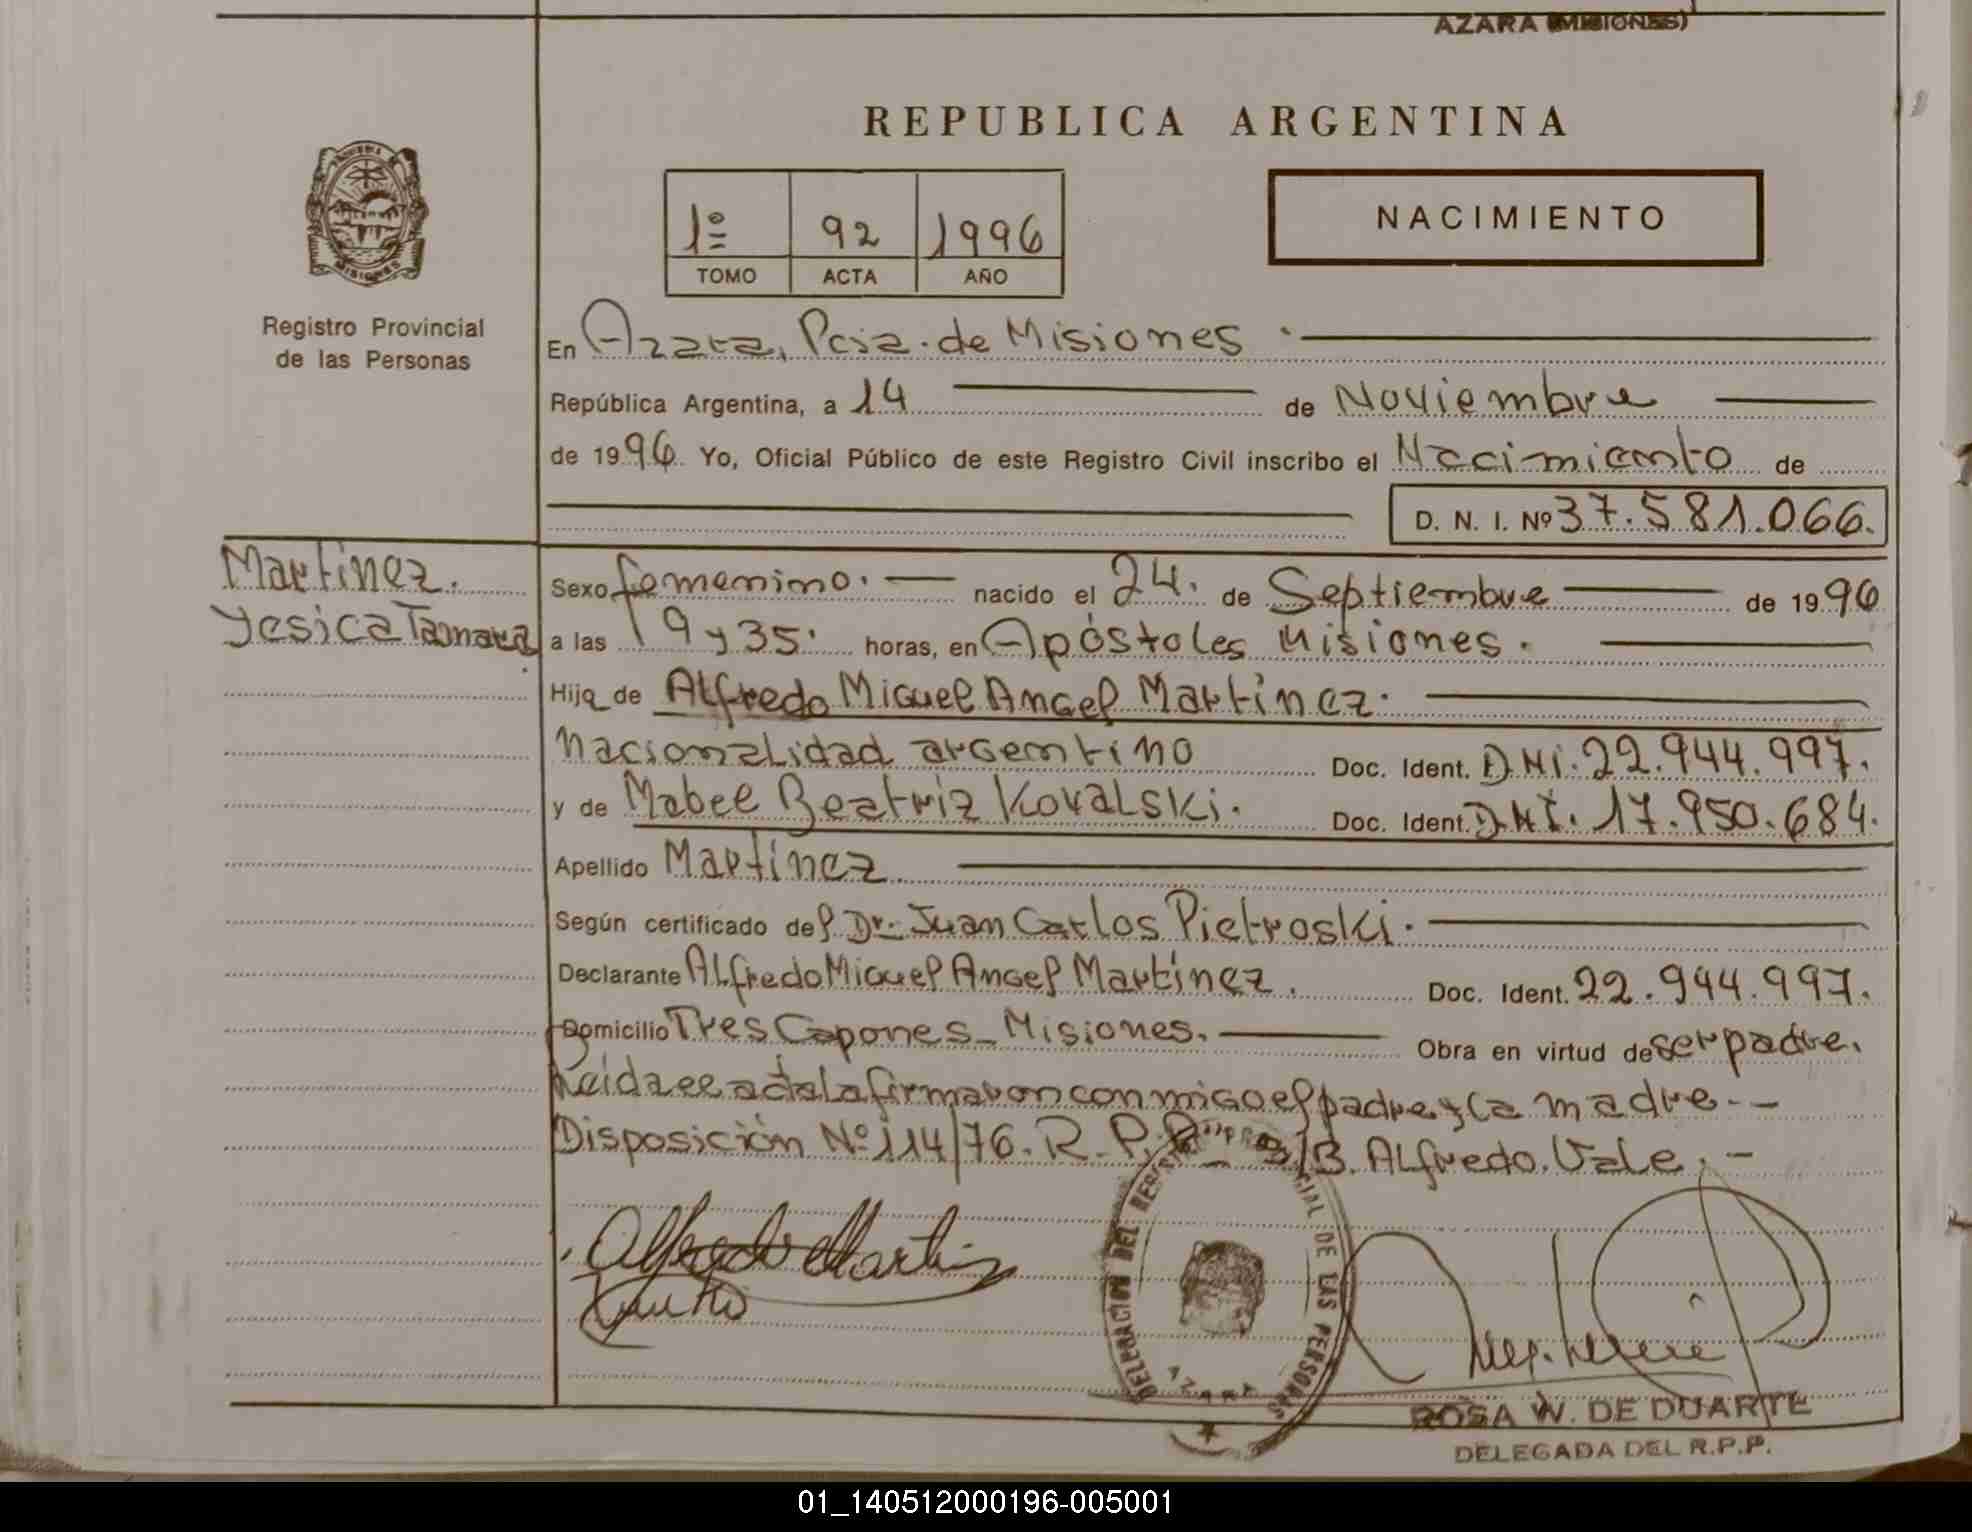 AZARA (MISIONES)
REPUBLICA ARGENTINA
MISIONES
Registro Provincial
de las Personas
1º 92 1996
TOMO ACTA AÑO
NACIMIENTO
En Azara, Pcia. de Misiones.
República Argentina, a 14 de Noviembre
de 1996 Yo, Oficial Público de este Registro Civil inscribo el Nacimiento de
D. N. I. Nº 37.581.066.
Martinez.
Yesica Tamara
Sexo femenino. nacido el 24. de Septiembre de 1996
a las 19 y 35. horas, en Apóstoles Misiones.
Hija de Alfredo Miguel Angel Martinez.
Nacionalidad argentino Doc. Ident. D.Ni. 22.944.997.
y de Mabel Beatriz Kovalski. Doc. Ident. D.N.I. 17.950.684.
Apellido Martínez
Según certificado del Dr. Juan Carlos Pietroski.
Declarante Alfredo Miguel Angel Martínez. Doc. Ident. 22.944.997.
Domicilio Tres Capones - Misiones. Obra en virtud de ser padre.
Leida el acta la firmaron conmigo el padre y la madre --
Disposición Nº 114/76. R.P.P. - S/B. Alfredo. Vale. -
Alfredo Martinez
DELEGACION DEL REGISTRO PROVINCIAL DE LAS PERSONAS
AZARA
ROSA W. DE DUARTE
DELEGADA DEL R.P.P.
01_140512000196-005001